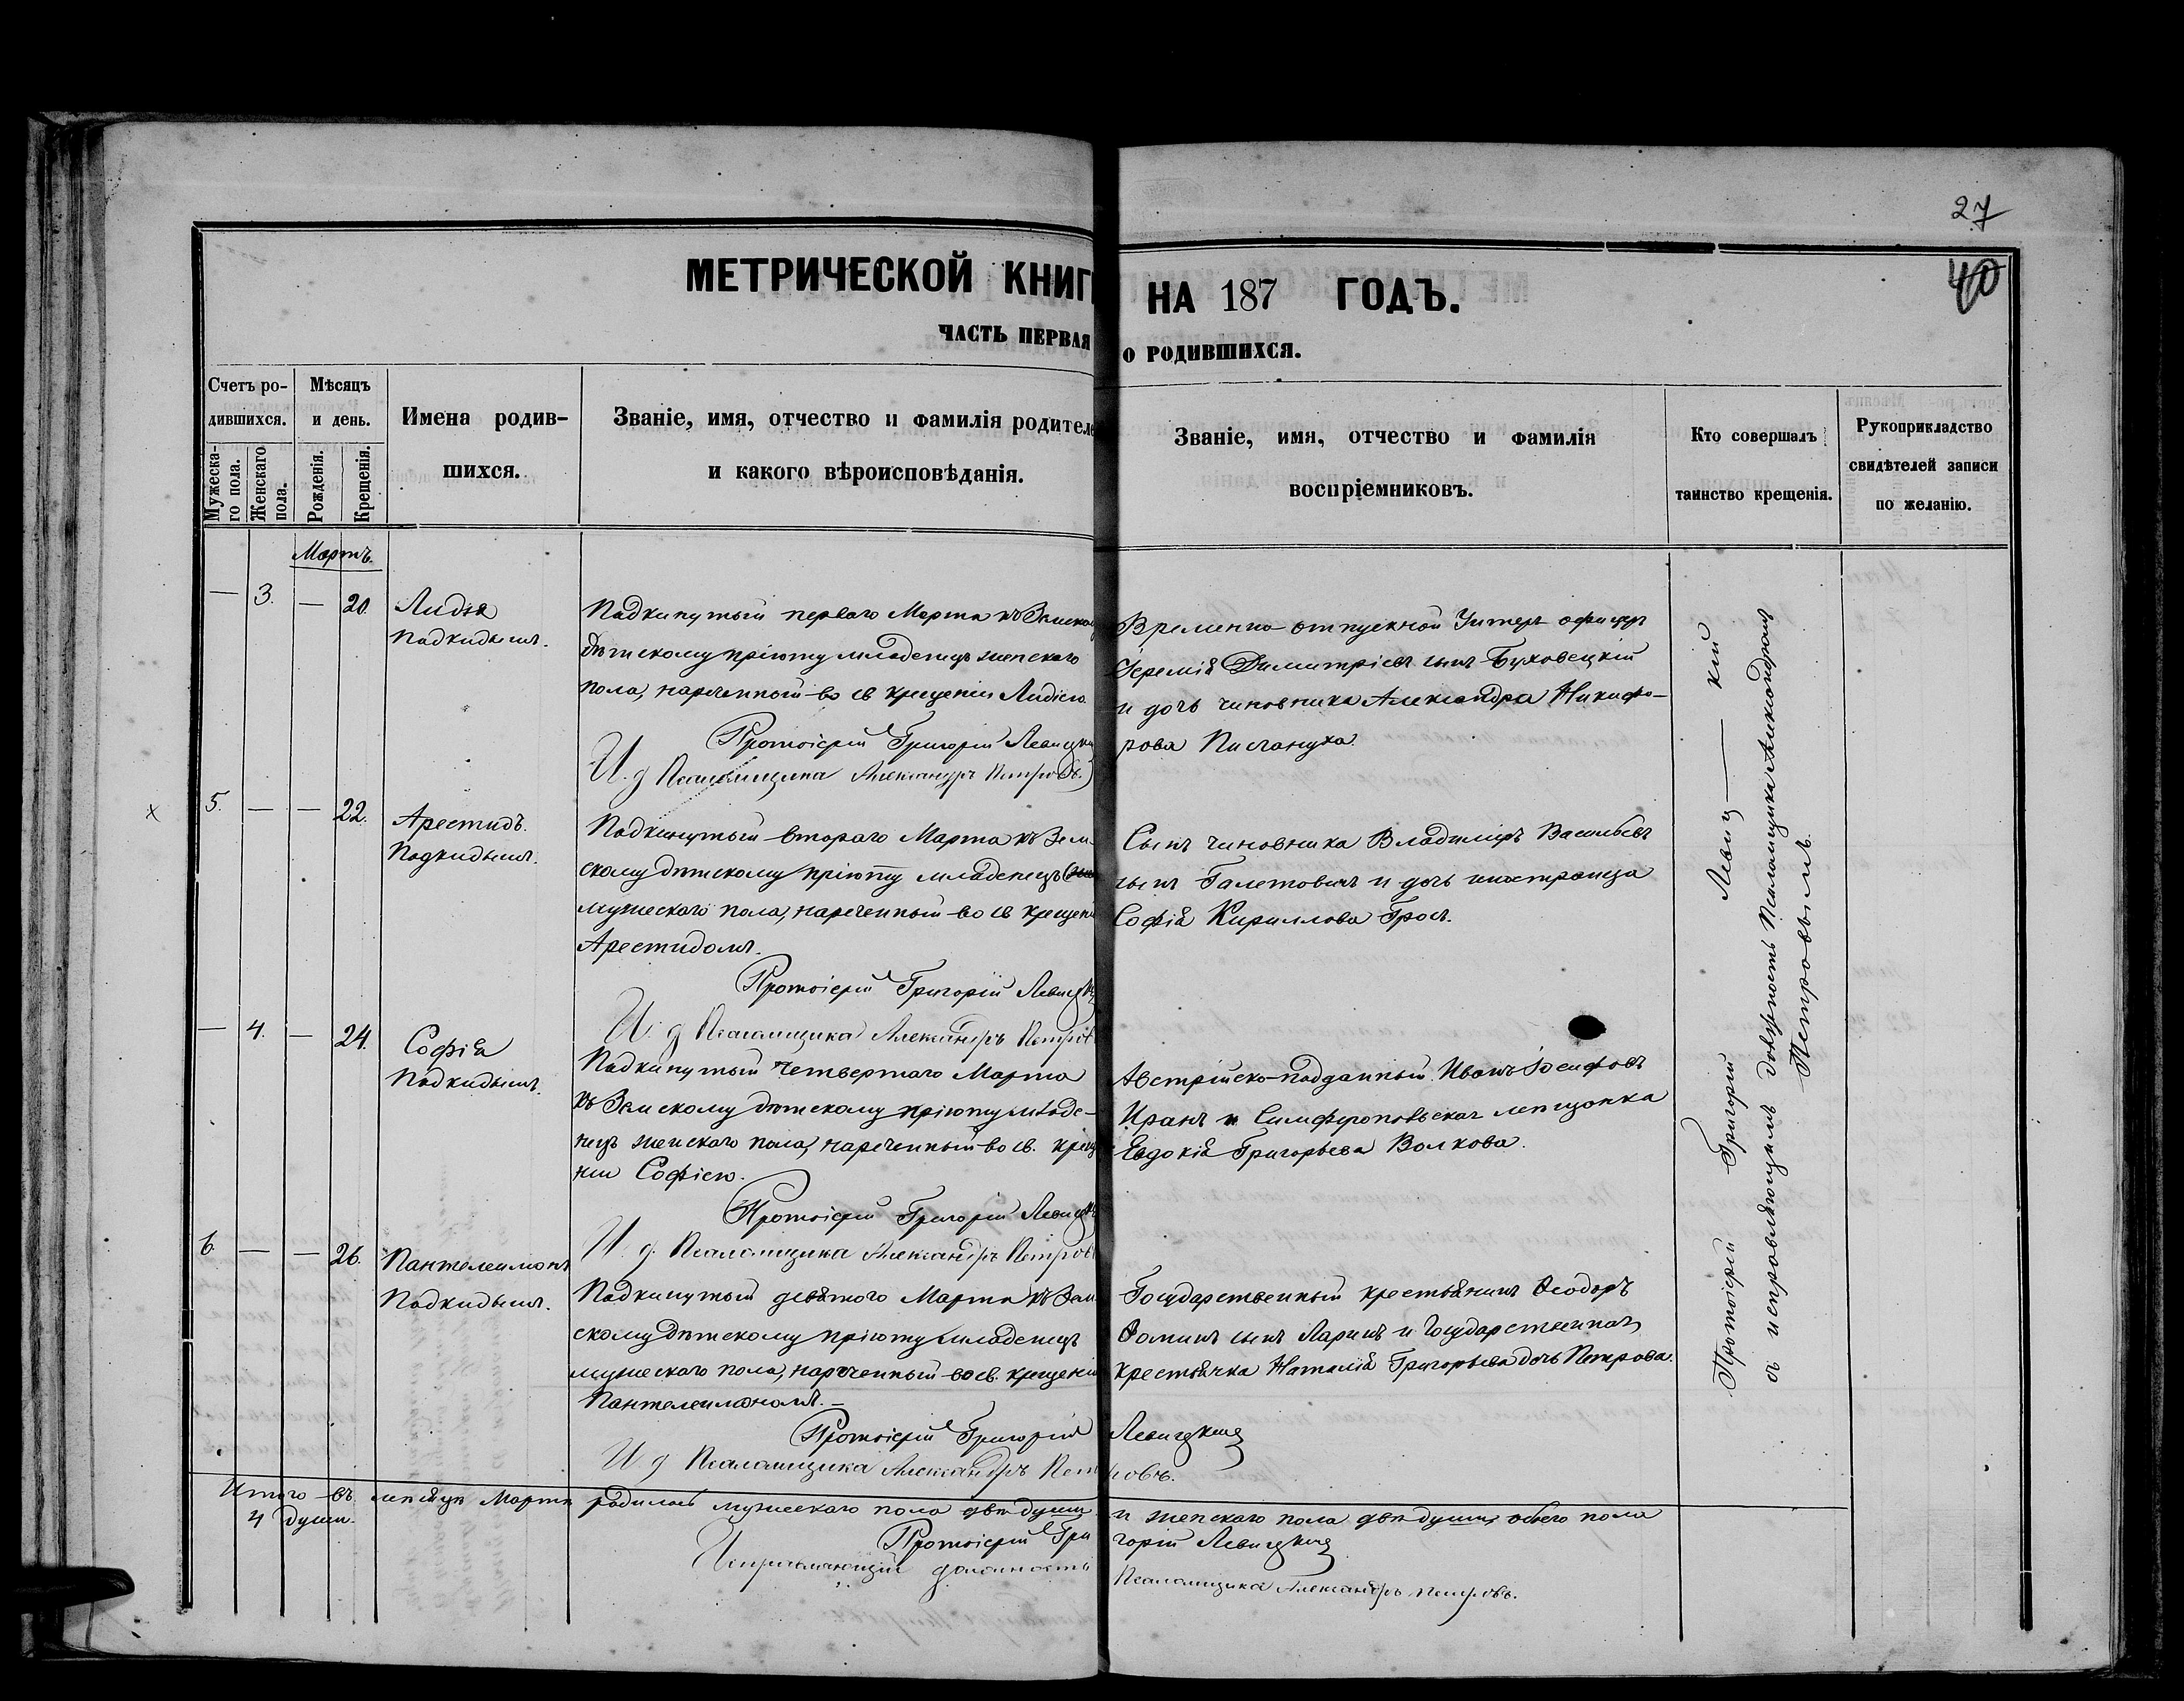 27
40
МЕТРИЧЕСКОЙ КНИГ НА 187 ГОДЪ.
ЧАСТЬ ПЕРВАЯ О РОДИВШИХСЯ.
Счетъ ро-
дившихся.
Мужеска-
го пола.
Женскаго
пола.
Мѣсяцъ
и день.
Рожденія.
Крещенія.
Имена родив-
шихся.
Званіе, имя, отчество и фамилія родителе
и какого вѣроисповѣданія.
Званіе, имя, отчество и фамилія
воспріемниковъ.
Кто совершалъ
таинство крещенія.
Рукоприкладство
свидѣтелей записи
по желанію.
Мартъ.
— 3. — 20.
Лидія
Подкидышъ.
Подкинутый перваго Марта къ Земском
дѣтскому пріюту младенецъ женскаго
пола, нареченный во св крещеніи Лидіею.
Протоіерей Григорій Левицкі
И. д Псаломщика Александръ Петровъ.
Временно отпускной Унтеръ офицеръ
Іеремія Димитріевъ сынъ Буховецкій
и дочь чиновника Александра Никифо-
рова Писануха.
5. — — 22.
Арестидъ.
Подкидышъ.
Подкинутый втораго Марта къ Зем-
скому дѣтскому пріюту младенецъ
мужескаго пола, нареченный во св крещені
Арестидомъ.
Протоіерей Григорій Левицк
И. д Псаломщика Александръ Петров
Сынъ чиновника Владимиръ Васильевъ
сынъ Галетовичъ и дочь иностранца
Софія Кириллова Гросъ.
— 4. — 24.
Софія
Подкидышъ.
Подкинутый четвертаго Марта
къ Земскому дѣтскому пріюту младе-
нецъ женскаго пола, нареченный во св. крещ
ніи Софіею.
Протоіерей Григорій Левицк
И. д. Псаломщика Александръ Петров
Австрійско-подданный Иванъ Іосифовъ
Иранъ и Симферопольская мѣщанка
Евдокія Григорьева Волкова.
6. — — 26.
Пантелеимонъ
Подкидышъ.
Подкинутый девятого Марта къ Зем
скому Дѣтскому пріюту младенецъ
мужескаго пола, нареченный во св. крещені
Пантелеимономъ. —
Протоіерей Григорій Левицкій
И. д Псаломщика Александръ Петровъ.
Государственный крестьянинъ Ѳеодоръ
Ѳоминъ сынъ Ларинъ и Государственная
крестьянка Наталія Григорьева дочь Петрова.
Протоіерей Григорій Левиц — кій
съ исправляющимъ должность Псаломщика Александромъ
Петровымъ.
Итого въ мѣсяцѣ Мартѣ родилось мужескаго пола двѣ души и женскаго пола двѣ души, обоего пола
4 души.
Протоіерей Григорій Левицкій
Исправляющій должность Псаломщика Александръ Петровъ.